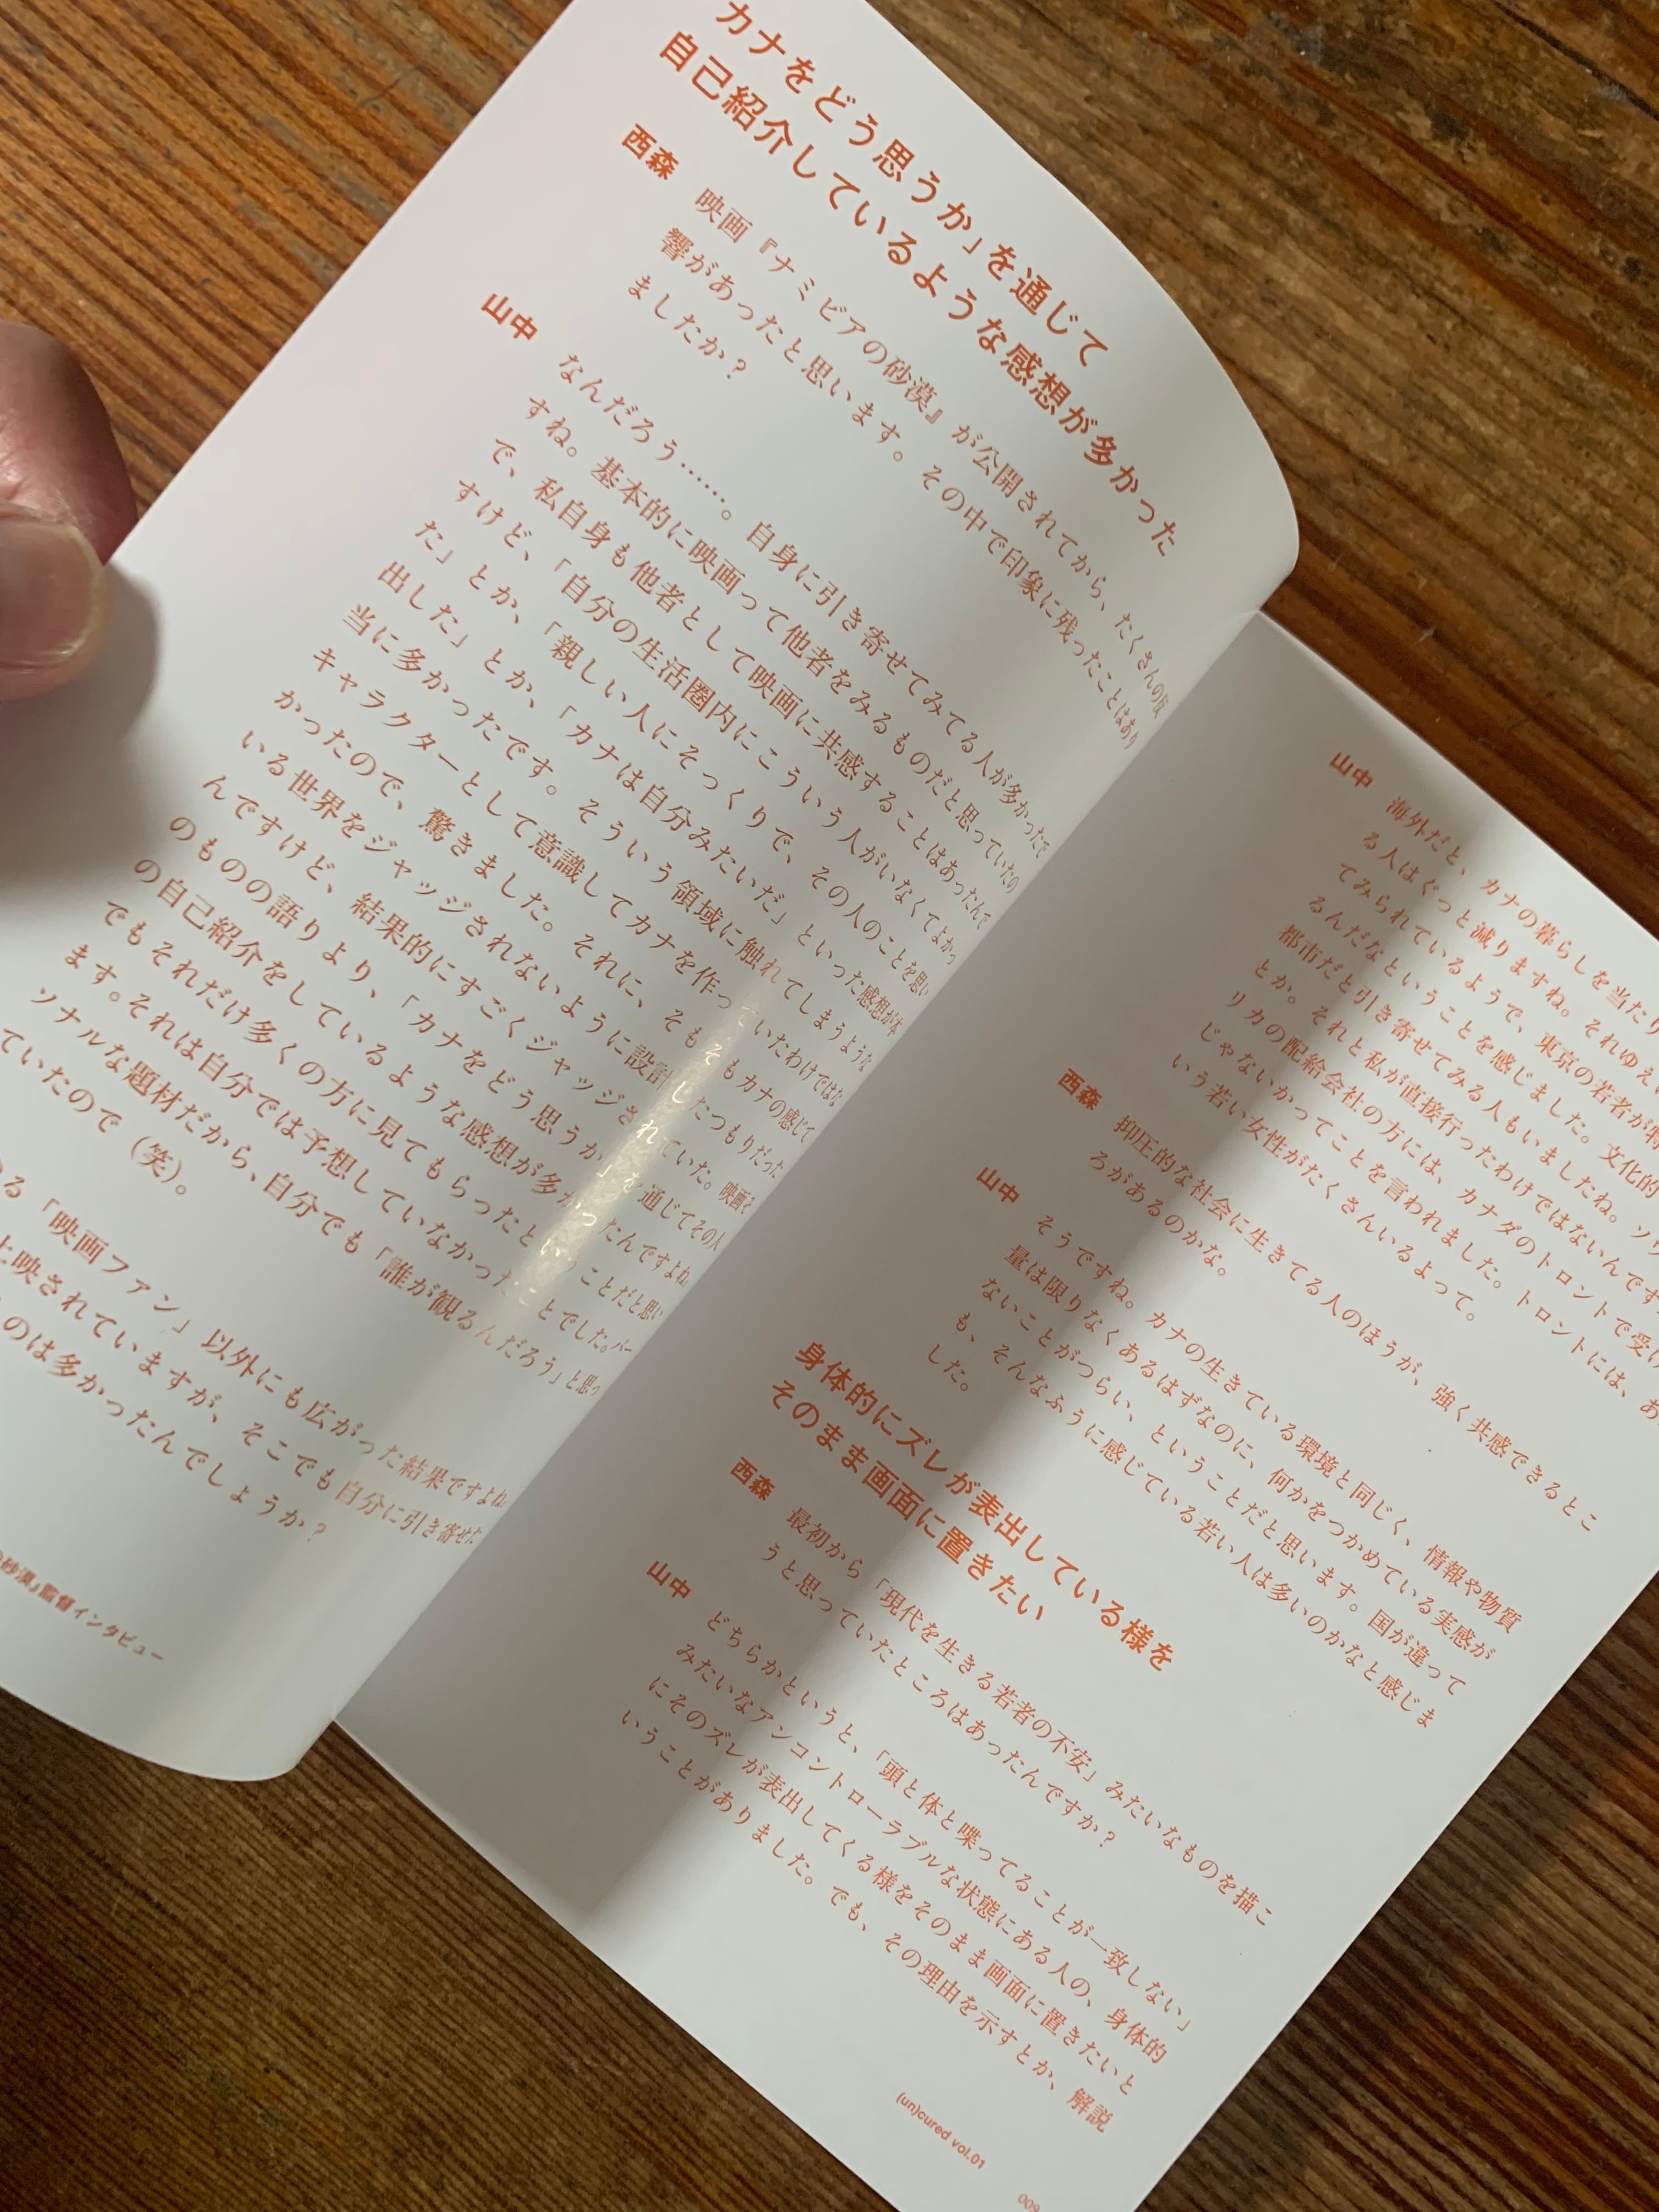 カナをどう思うか」を通じて
自己紹介しているような感想が多かった
西森
映画『ナミビアの砂漠』が公開されてから、たくさんの反
響があったと思います。その中で印象に残ったことはあり
ましたか?
山中
なんだろう……。自身に引き寄せてみてる人が多かったで
すね。基本的に映画って他者をみるものだと思っていたの
で、私自身も他者として映画に共感することはあったんで
すけど、「自分の生活圏内にこういう人がいなくてよかっ
た」とか、「親しい人にそっくりで、その人のことを思い
出した」とか、「カナは自分みたいだ」といった感想が本
当に多かったです。そういう領域に触れてしまうような
キャラクターとして意識してカナを作っていたわけではな
かったので、驚きました。それに、そもそもカナの感じて
いる世界をジャッジされないように設計したつもりだった
んですけど、結果的にすごくジャッジされていた。映画そ
のものの語りより、「カナをどう思うか」を通じてその人
の自己紹介をしているような感想が多かったんですよね。
でもそれだけ多くの方に見てもらったということだと思い
ます。それは自分では予想していなかったことでした。パー
ソナルな題材だから、自分でも「誰が観るんだろう」と思っ
ていたので(笑)。
る「映画ファン」以外にも広がった結果ですよね
上映されていますが、そこでも自分に引き寄せた
のは多かったんでしょうか?
砂漠』監督インタビュー
山中
海外だと、カナの暮らしを当たり
る人はぐっと減りますね。それゆえ
てみられているようで、東京の若者が特
るんだなということを感じました。文化的
都市だと引き寄せてみる人もいましたね。ソウ
とか。それと私が直接行ったわけではないんです
リカの配給会社の方には、カナダのトロントで受け
じゃないかってことを言われました。トロントには、あ
いう若い女性がたくさんいるよって。
西森
抑圧的な社会に生きてる人のほうが、強く共感できるとこ
ろがあるのかな。
山中
そうですね。カナの生きている環境と同じく、情報や物質
量は限りなくあるはずなのに、何かをつかめている実感が
ないことがつらい、ということだと思います。国が違って
も、そんなふうに感じている若い人は多いのかなと感じま
した。
身体的にズレが表出している様を
そのまま画面に置きたい
西森
最初から「現代を生きる若者の不安」みたいなものを描こ
うと思っていたところはあったんですか?
山中
どちらかというと、「頭と体と喋ってることが一致しない」
みたいなアンコントローラブルな状態にある人の、身体的
にそのズレが表出してくる様をそのまま画面に置きたいと
いうことがありました。でも、その理由を示すとか、解説
(un)cured vol.01
009